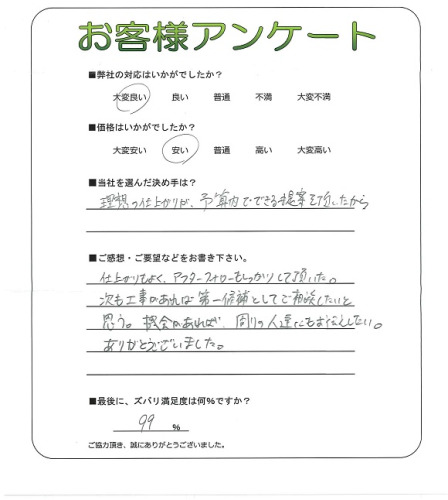 お客様アンケート
■弊社の対応はいかがでしたか？
大変良い 良い 普通 不満 大変不満
■価格はいかがでしたか？
大変安い 安い 普通 高い 大変高い
■当社を選んだ決め手は？
理想の仕上がりが、予算内でできる提案を頂したから
■ご感想・ご要望などをお書き下さい。
仕上がりもよく、アフターフォローもしっかりして頂いた。
次も工事があれば第一候補としてご相談したいと
思う。機会があれば、周りの人達にもお伝えしたい。
ありがとうございました。
■最後に、ズバリ満足度は何%ですか？
99 %
ご協力頂き、誠にありがとうございました。